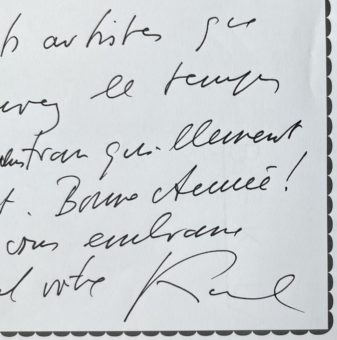 artistes que
le temps
tranquillement
. Bonne Année !
vous embrasse
votre Karl